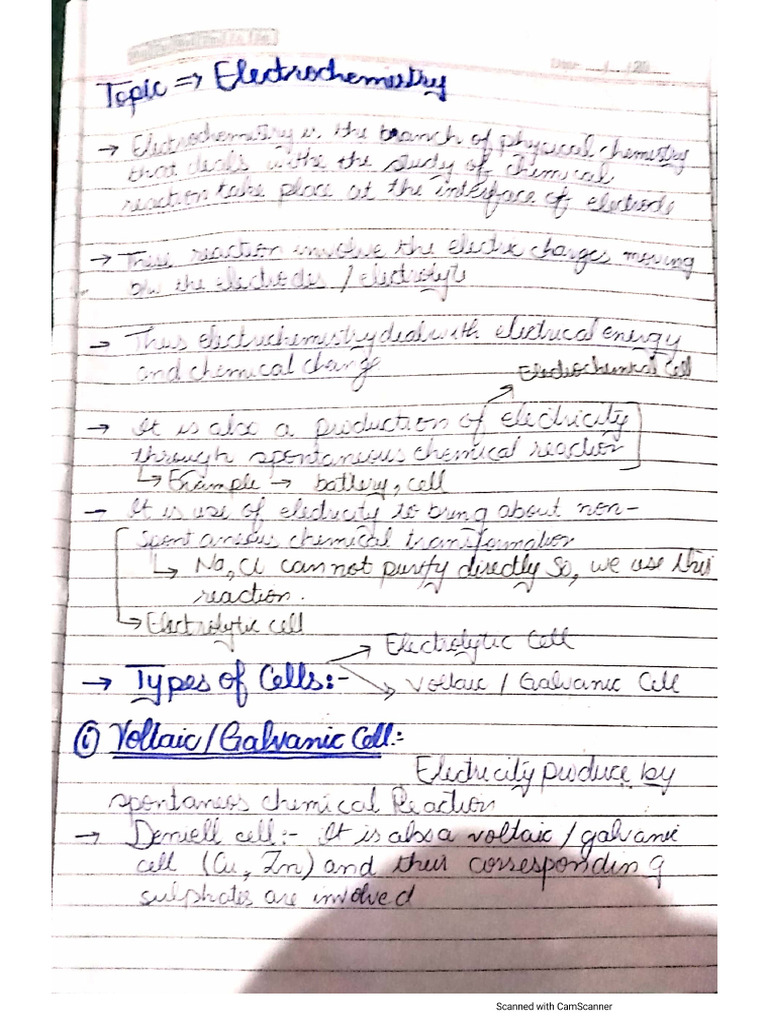 Date __/__/20__
Topic ⇒ Electrochemistry
→ Electrochemistry is the branch of physical chemistry
that deals withe the study of chemical
reaction take place at the interface of electrode
→ These reaction involve the electric charges moving
b/w the electrodes / electrolyte
→ Thus electrochemistry deal with electrical energy
and chemical change
Electrochemical Cell
→ It is also a production of electricity
through spontaneous chemical reaction
↳ Example → battery, cell
→ It is use of electricity to bring about non-
spontaneous chemical transformation
↳ Na, Cl cannot purify directly So, we use this
reaction.
↳ Electrolytic cell
→ Electrolytic Cell
→ Types of Cells:-
→ Voltaic / Galvanic Cell
(i) Voltaic/Galvanic Cell:-
Electricity produce by
spontaneos chemical Reaction
→ Deniell cell:- It is also a voltaic / galvanic
cell (Cu, Zn) and their corresponding
sulphates are involved
Scanned with CamScanner